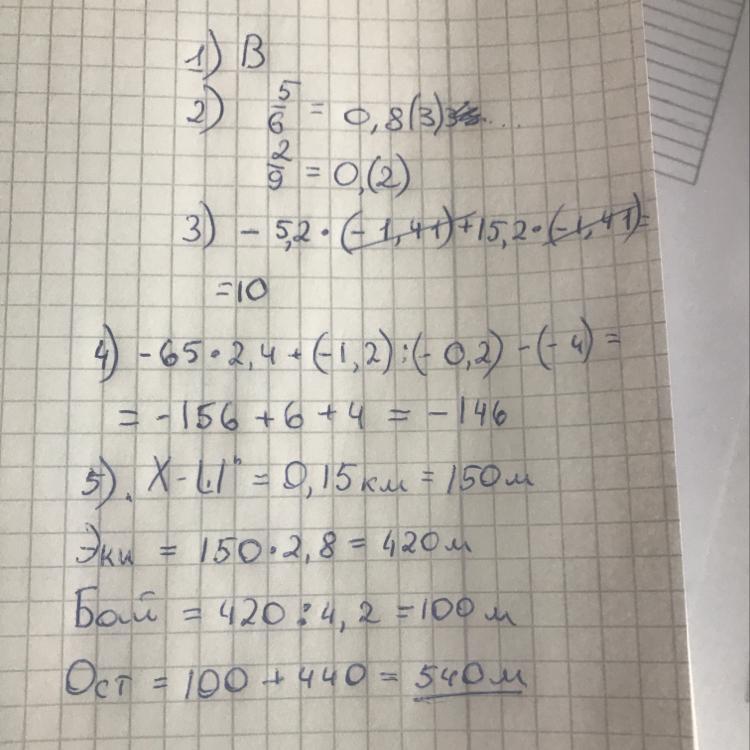 1) В
2) 5/6 = 0,8(3)...
2/9 = 0,(2)
3) - 5,2 · (- 1,41) + 15,2 · (-1,41) =
= 10
4) - 65 · 2,4 + (-1,2) : (- 0,2) - (- 4) =
= - 156 + 6 + 4 = - 146
5). = 0,15 км = 150 м
Эки = 150 · 2,8 = 420 м
Бай = 420 : 4,2 = 100 м
Ост = 100 + 440 = 540 м